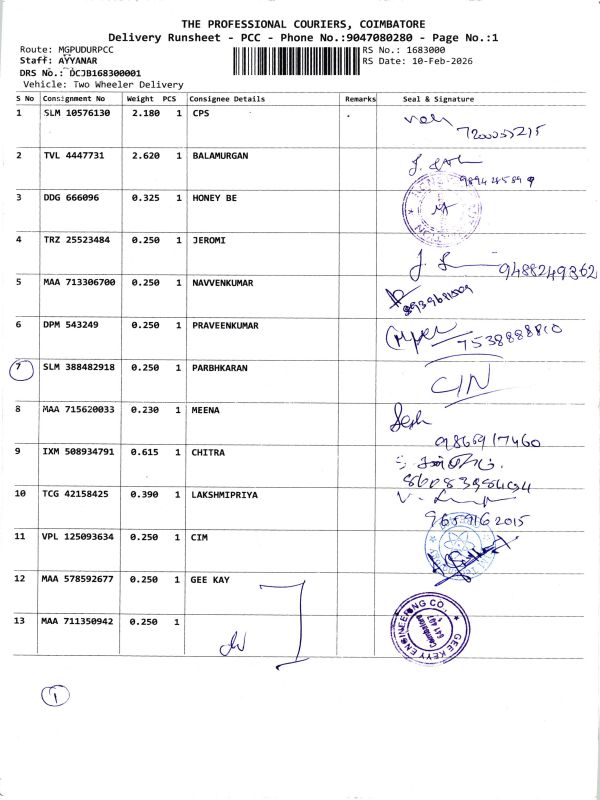 THE PROFESSIONAL COURIERS, COIMBATORE
Delivery Runsheet - PCC - Phone No.:9047080280 - Page No.:1
Route: MGPUDURPCC
RS No.: 1683000
Staff: AYYANAR
RS Date: 10-Feb-2026
DRS No.: DCJB168300001
Vehicle: Two Wheeler Delivery
S No Consignment No Weight PCS Consignee Details Remarks Seal & Signature
1 SLM 10576130 2.180 1 CPS
7200057215
2 TVL 4447731 2.620 1 BALAMURGAN
3 DDG 666096 0.325 1 HONEY BE
4 TRZ 25523484 0.250 1 JEROMI
9488249362
5 MAA 713306700 0.250 1 NAVVENKUMAR
6 DPM 543249 0.250 1 PRAVEENKUMAR
7538888810
7 SLM 388482918 0.250 1 PARBHKARAN
CIN
8 MAA 715620033 0.230 1 MEENA
9866917460
9 IXM 508934791 0.615 1 CHITRA
10 TCG 42158425 0.390 1 LAKSHMIPRIYA
9659162015
11 VPL 125093634 0.250 1 CIM
12 MAA 578592677 0.250 1 GEE KAY
13 MAA 711350942 0.250 1
GEE KEYY ENGINEERING CO.
Coimbatore
641 407
1